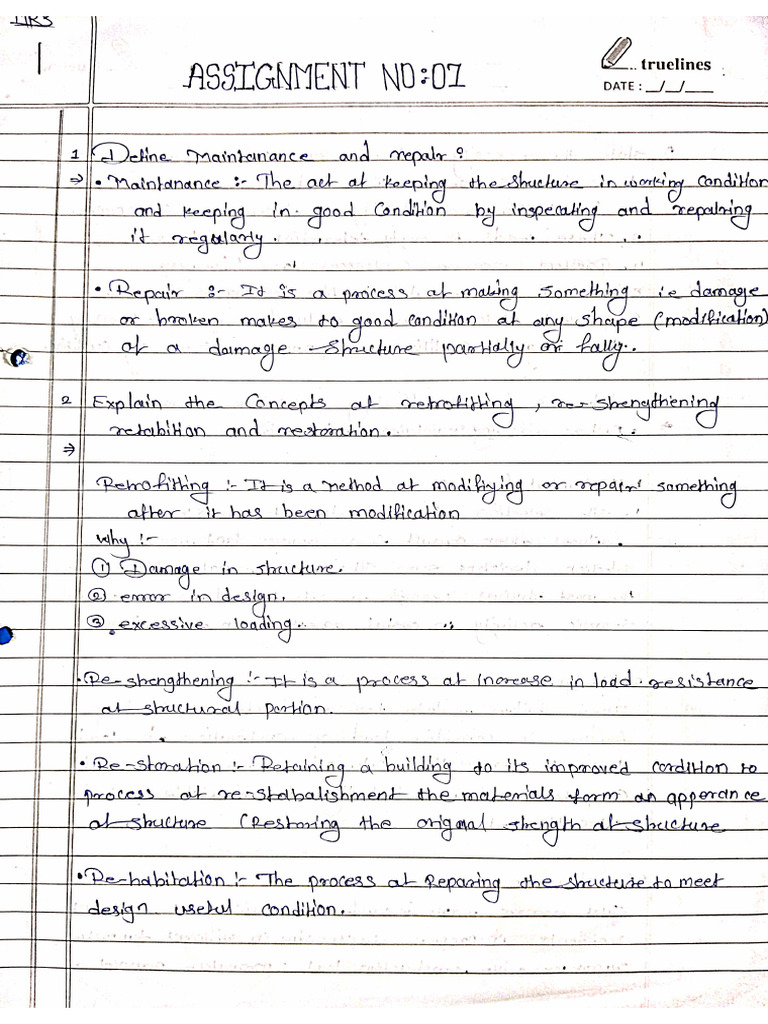 1
ASSIGNMENT NO:01
truelines
DATE: _/_/__
1 Define Maintanance and repair?
⇒ • Maintanance :- The act at keeping the structure in working condition
and keeping in good condition by inspecating and repairing
it regularly.
• Repair :- It is a process at making something ie damage
or broken makes to good condition at any shape (modification)
at a damage structure partially or fally.
2 Explain the Concepts at retrofitting, re-strengthening
retabition and restoration.
⇒
Retrofitting :- It is a method at modifiying or repair something
after it has been modification
why :-
① Damage in structure.
② error in design.
③ excessive loading.
• Re-strengthening :- It is a process at increase in load resistance
at structural partion.
• Re-storation :- Retaining a building to its improved condition to
process at re-stalbalishment the materials form an apperance
at structure (Restoring the original strength at structure
• Re-habitation :- The process at Reparing the structure to meet
design useful condition.